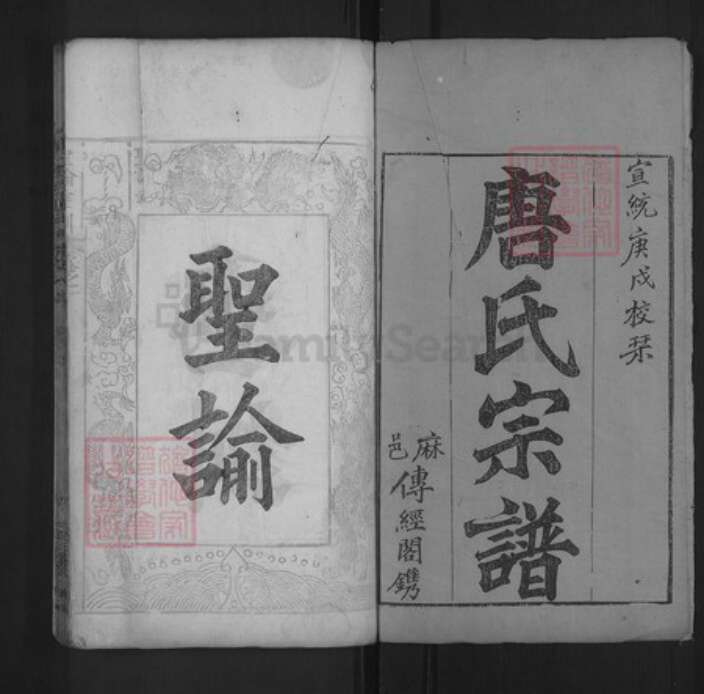 宣統庚戌校栞
唐氏宗譜
麻邑
傳經閣鐫
聖諭
FamilySearch